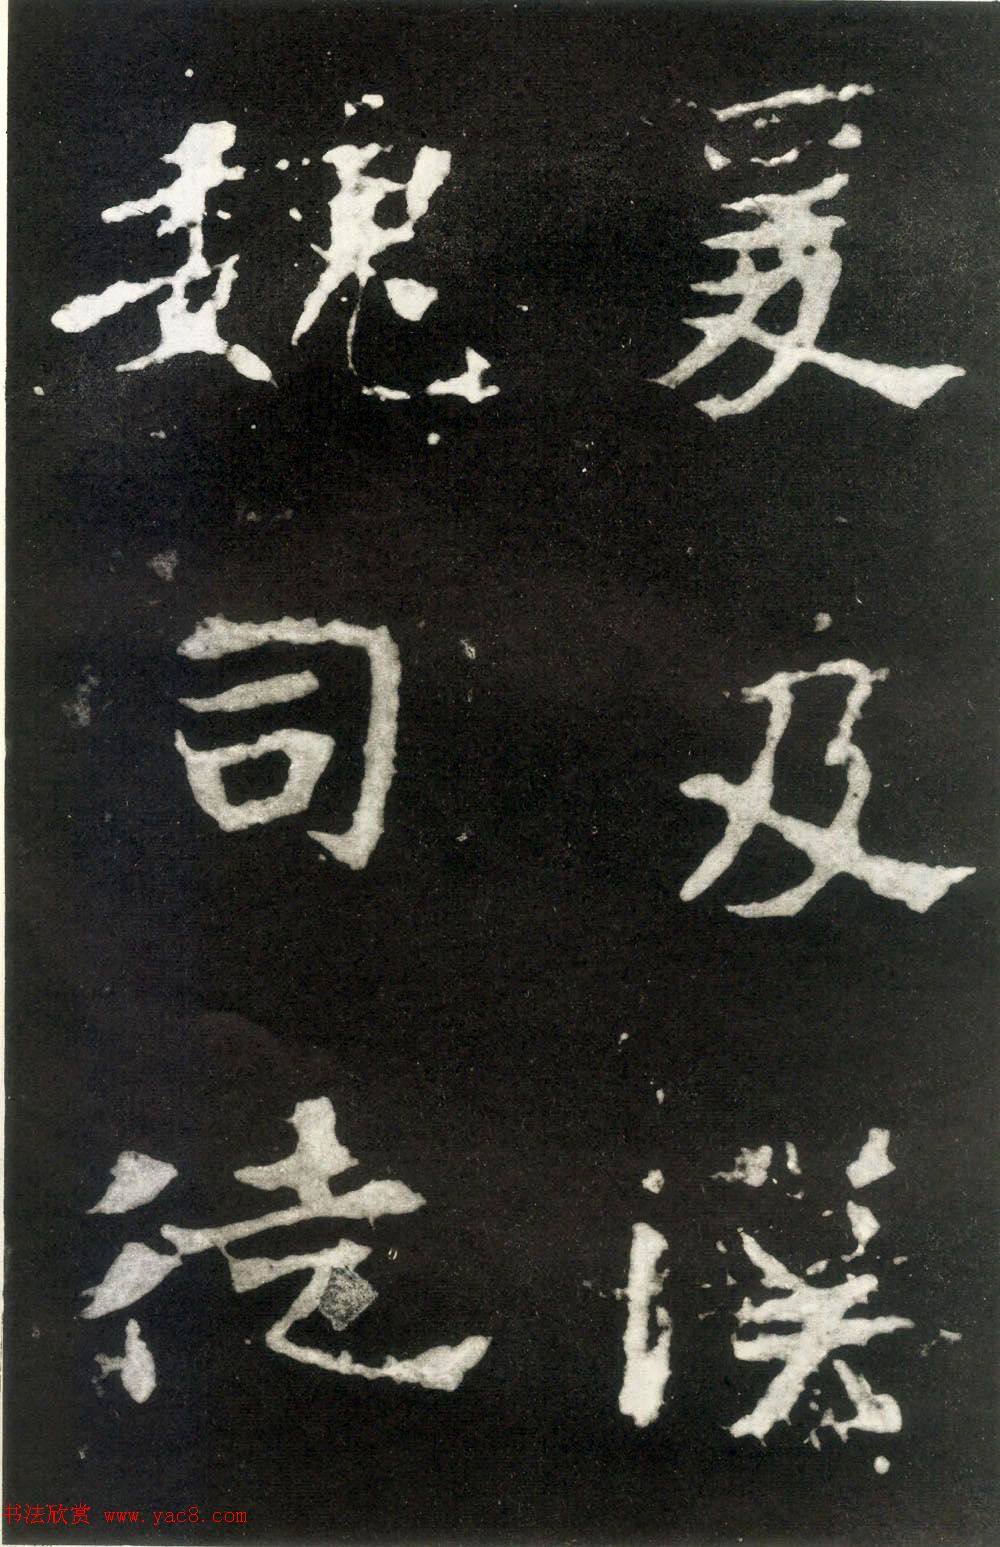 爰及漢
魏司徒
书法欣赏 www.yac8.com